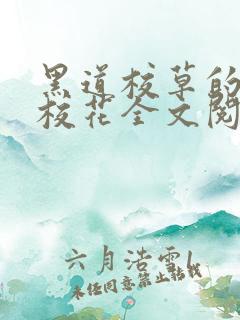 黑道校草的
校花全文阅
六月浩雪\
未经同意禁止转载